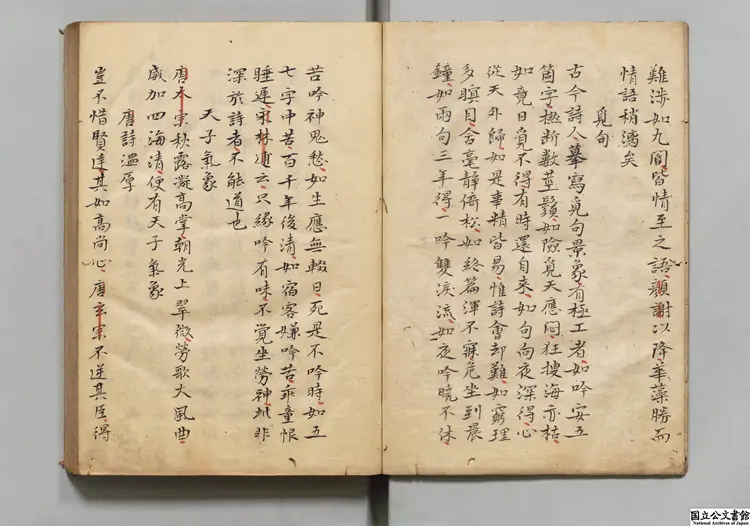 難渉如九閽皆情至之語顔謝以降華藻勝而
情語稍漓矣
覓句
古今詩人摹寫覓句景象有極工者如吟安五
箇字撚断數莖鬚如險覓天應悶狂搜海亦枯
如竟日覓不得有時還自来如句向夜深得心
從天外歸如是事精皆易惟詩會却難如窮理
多瞑目含毫静倚松如終篇渾不寐危坐到晨
鐘如兩句三年得一吟雙淚流如夜吟曉不休
苦吟神鬼愁如生應無輟日死是不吟時如五
七字中苦百千年後清如宿客嫌吟苦乖童恨
睡遲宋林逋云只緣吟有味不覺坐勞神此非
深於詩者不能道也
天子氣象
唐太宗秋露凝高掌朝光上翠微勞歌大風曲
威加四海清便有天子氣象
唐詩温厚
豈不惜賢達其如高尚心唐玄宗不逆其臣得
国立公文書館
National Archives of Japan